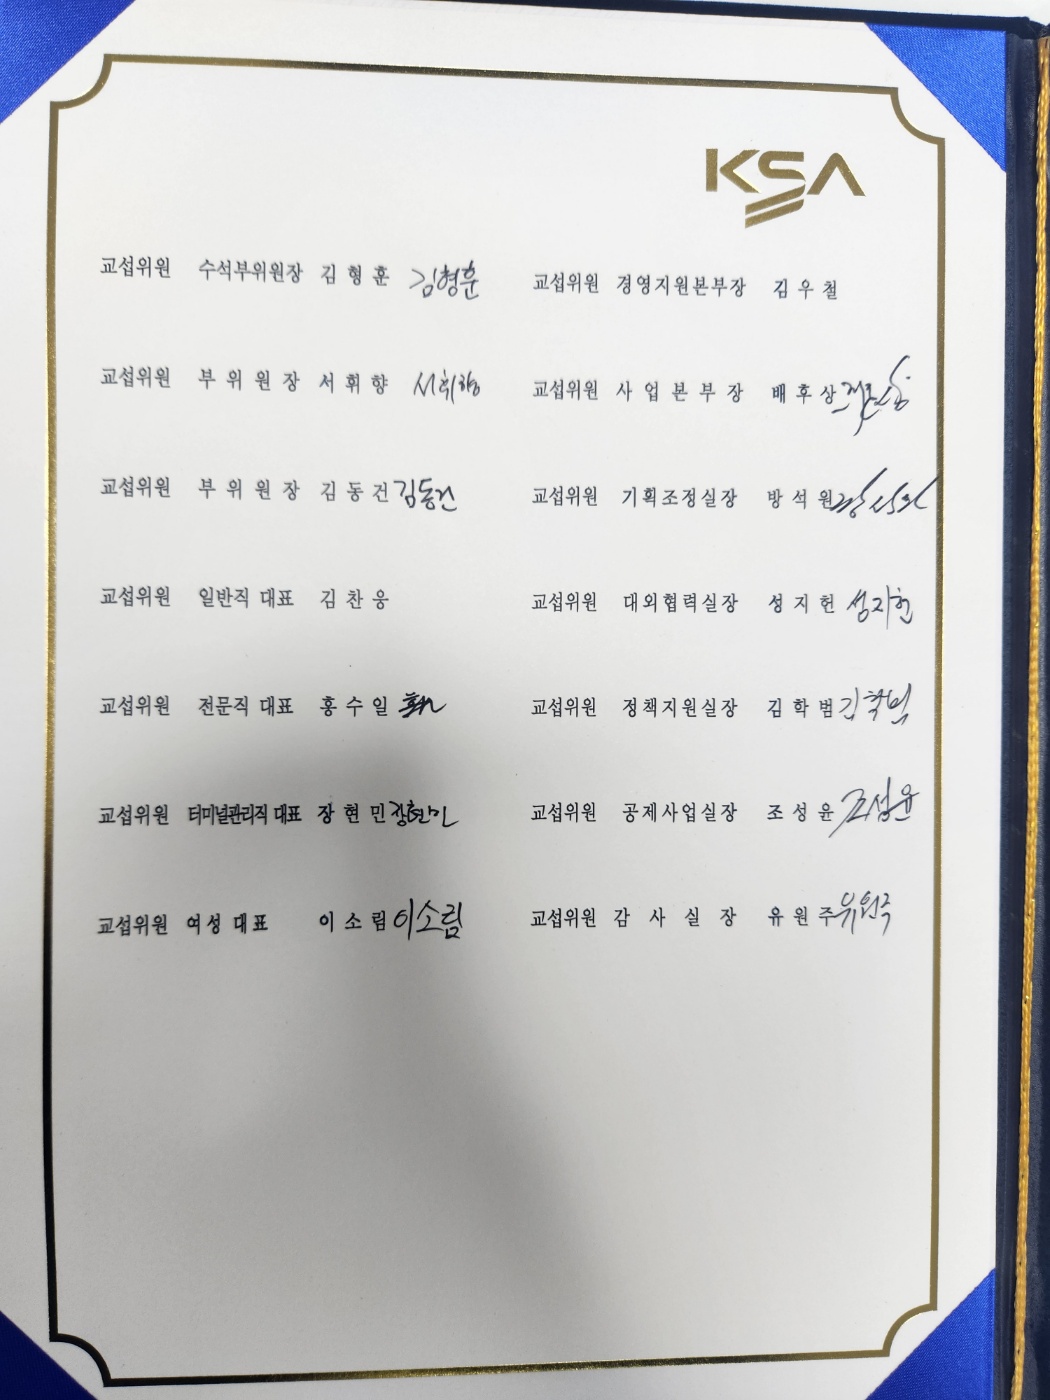 KSA
교섭위원 수석부위원장 김형훈 김형훈
교섭위원 경영지원본부장 김우철
교섭위원 부위원장 서휘향 서휘향
교섭위원 사업본부장 배후상
교섭위원 부위원장 김동건 김동건
교섭위원 기획조정실장 방석원
교섭위원 일반직 대표 김찬웅
교섭위원 대외협력실장 성지헌 성지헌
교섭위원 전문직 대표 홍수일
교섭위원 정책지원실장 김학범 김학범
교섭위원 터미널관리직 대표 장현민 장현민
교섭위원 공제사업실장 조성윤 조성윤
교섭위원 여성 대표 이소림 이소림
교섭위원 감사실장 유원주 유원주